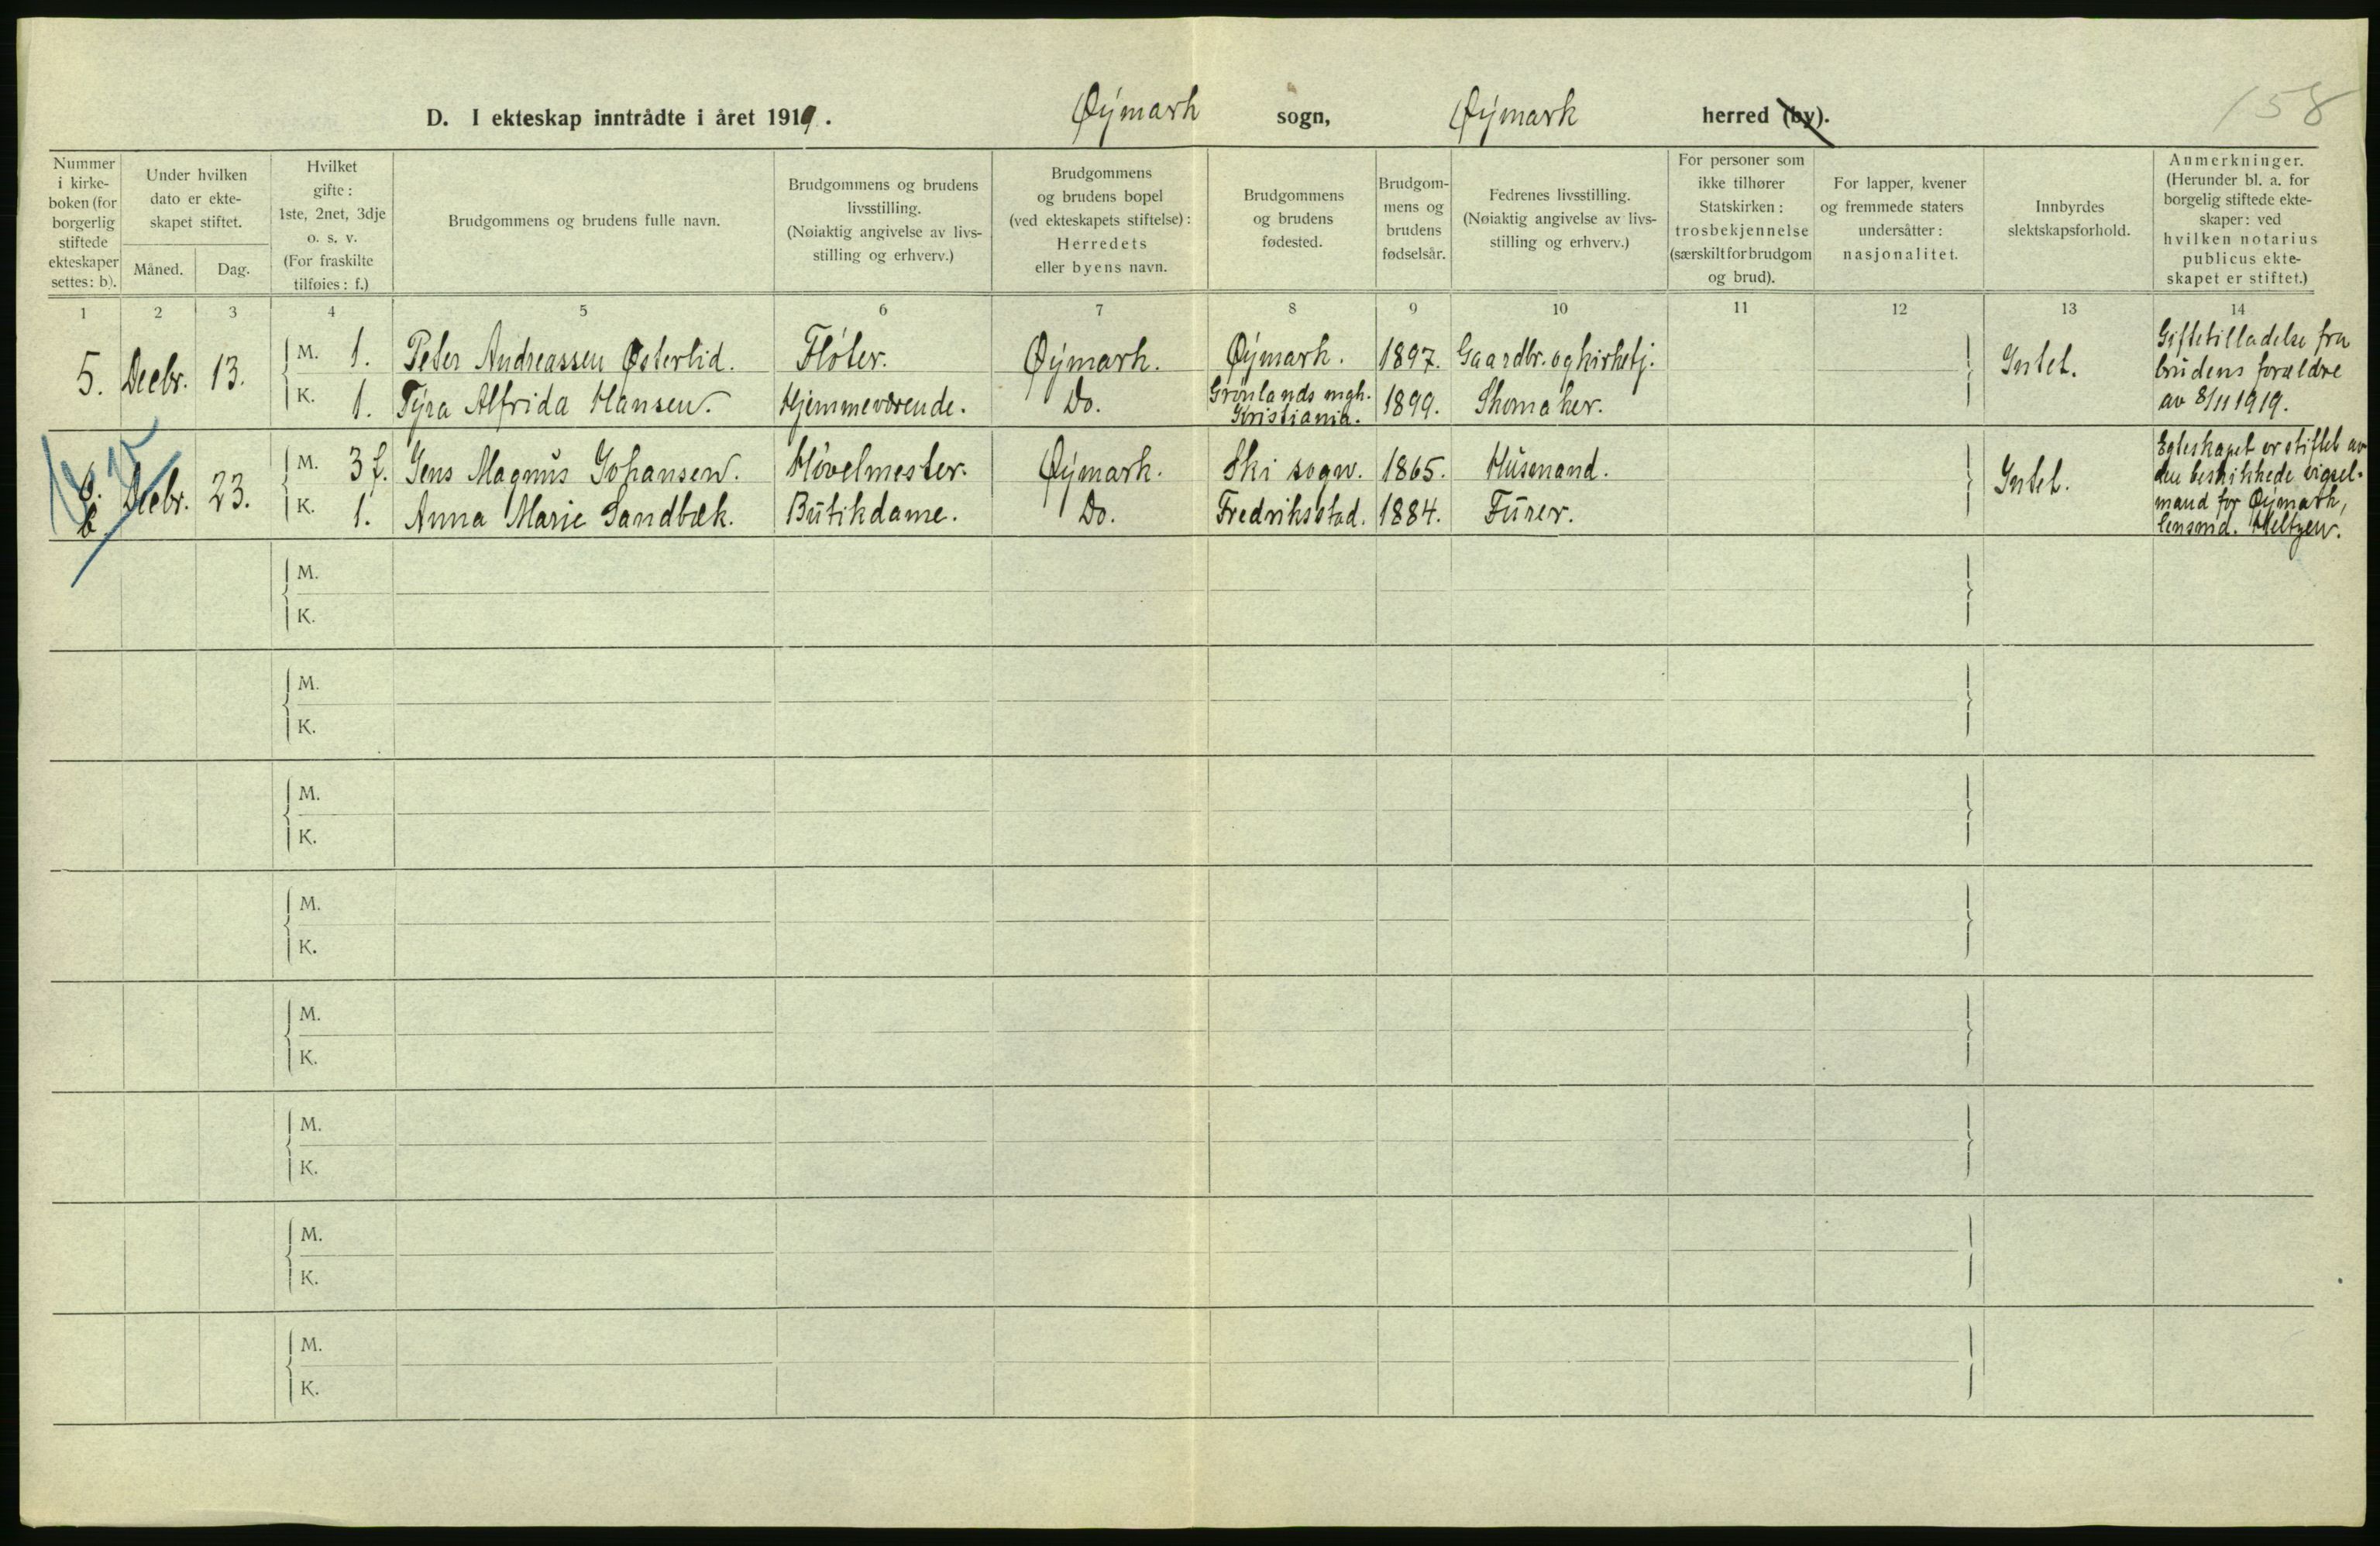 158
D. I ekteskap inntrådte i året 1919. Øymark sogn, Øymark herred (by).
Nummer i kirke-boken (for borgerlig stiftede ekteskaper settes: b).
Under hvilken dato er ekte-skapet stiftet.
Måned.
Dag.
Hvilket gifte: 1ste, 2net, 3dje o. s. v. (For fraskilte tilføies: f.)
Brudgommens og brudens fulle navn.
Brudgommens og brudens livsstilling. (Nøiaktig angivelse av livs-stilling og erhverv.)
Brudgommens og brudens bopel (ved ekteskapets stiftelse): Herredets eller byens navn.
Brudgommens og brudens fødested.
Brudgom-mens og brudens fødselsår.
Fedrenes livsstilling. (Nøiaktig angivelse av livs-stilling og erhverv.)
For personer som ikke tilhører Statskirken: trosbekjennelse (særskilt for brudgom og brud).
For lapper, kvener og fremmede staters undersåtter: nasjonalitet.
Innbyrdes slektskapsforhold.
Anmerkninger. (Herunder bl. a. for borgelig stiftede ekte-skaper: ved hvilken notarius publicus ekte-skapet er stiftet.)
1 2 3 4 5 6 7 8 9 10 11 12 13 14
5. Decbr. 13.
M. 1. Peter Andreassen Østerlid. Fløter. Øymark. Øymark. 1897. Gaardbr. og kirketj.
K. 1. Tyra Alfrida Hansen. Hjemmeværende. Do. Grønlands mgh. Kristiania. 1899. Skomaker.
Intet.
Giftetilladelse fra
brudens forældre
av 8/11 1919.
6. b Decbr. 23.
M. 3 f. Jens Magnus Johansen. Høvelmester. Øymark. Ski sogn. 1865. Husmand.
K. 1. Anna Marie Sandbæk. Butikdame. Do. Fredriksstad. 1884. Furer.
Intet.
Egteskapet er stiftet av
den beskikkede vigsel-
mand for Øymark,
lensmd. Heltzen.
M.
K.
M.
K.
M.
K.
M.
K.
M.
K.
M.
K.
M.
K.
M.
K.